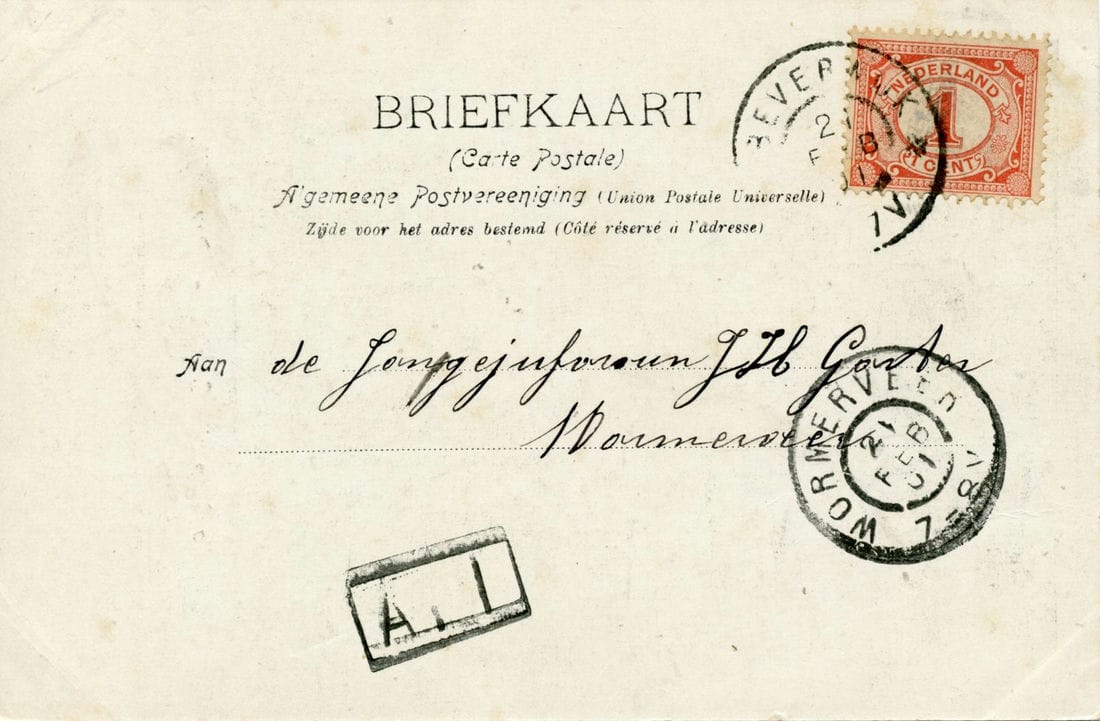 BRIEFKAART
(Carte Postale)
Algemeene Postvereeniging (Union Postale Universelle)
Zijde voor het adres bestemd (Côté réservé à l'adresse)
NEDERLAND
1
1 CENT
BEVERWIJK
FEB
7 V
Aan de Jongejufvrouw JH Gorter
Wormerveer
WORMERVEER
21
FEB
01
7-8V
A. I